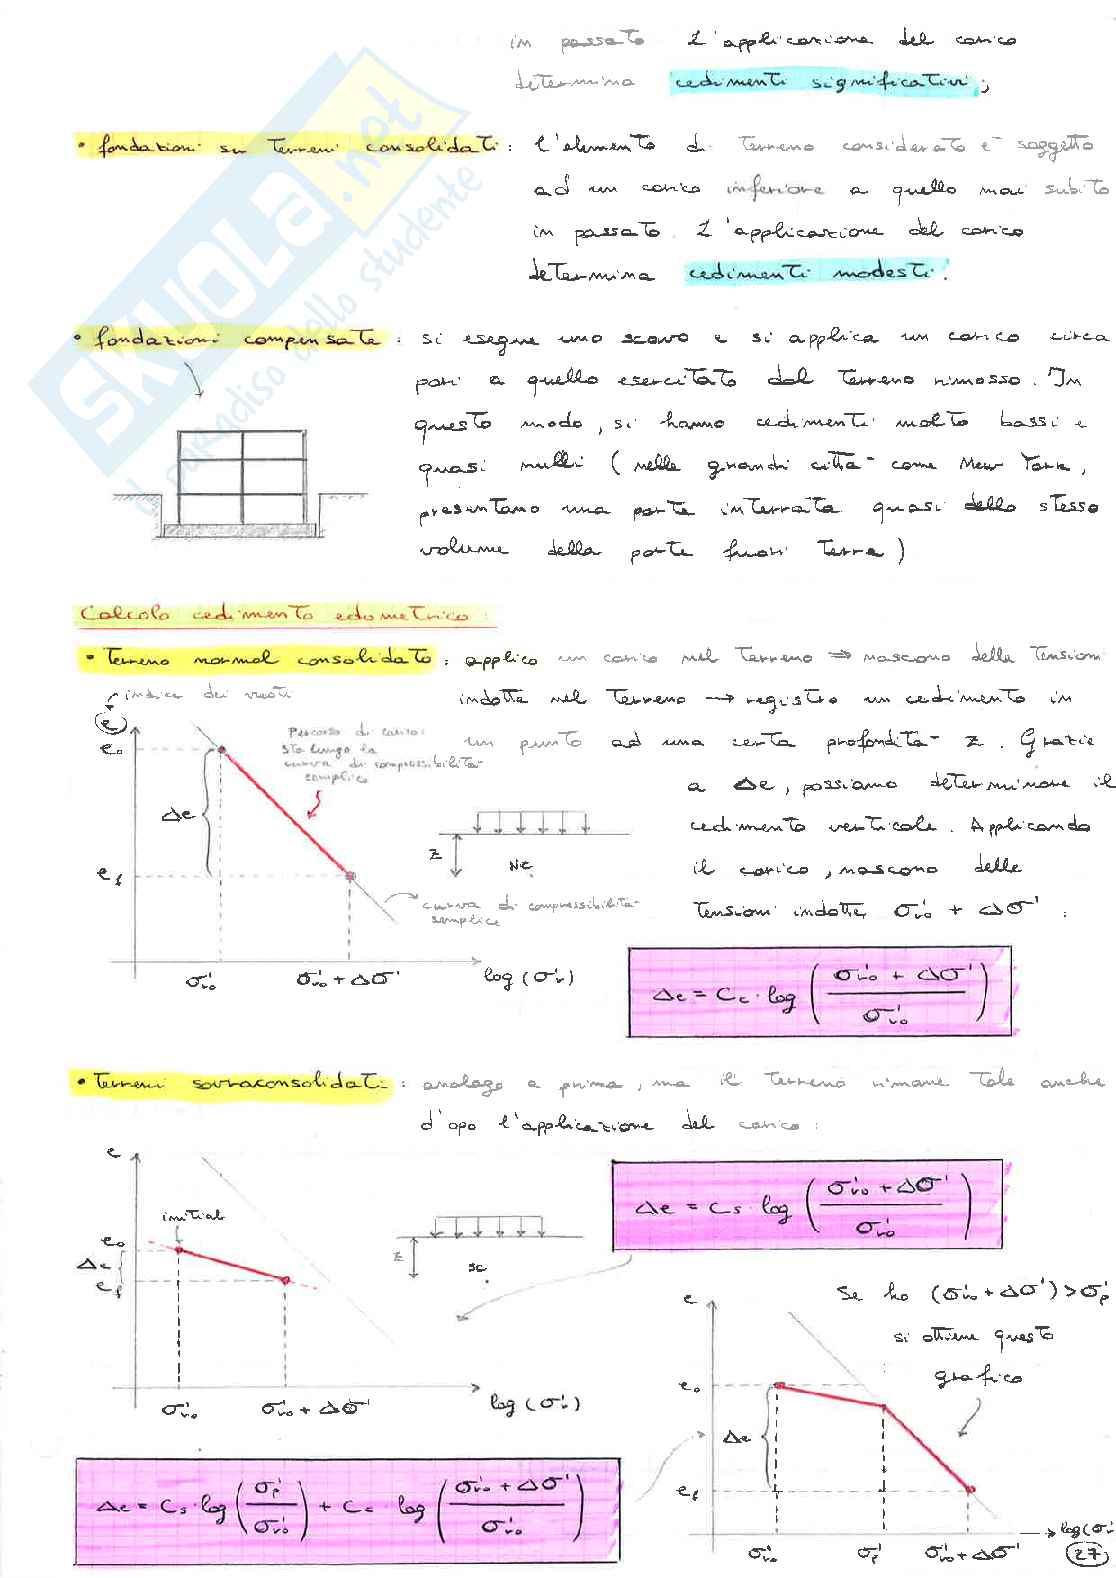 in passato. L'applicazione del carico
determina cedimenti significativi;
• fondazioni su terreni consolidati: l'elemento di terreno considerato è soggetto
ad un carico inferiore a quello mai subito
in passato. L'applicazione del carico
determina cedimenti modesti.
• fondazioni compensate: si esegue uno scavo e si applica un carico circa
pari a quello esercitato dal terreno rimosso. In
questo modo, si hanno cedimenti molto bassi e
quasi nulli (nelle grandi città come New York,
presentano una parte interrata quasi dello stesso
volume della parte fuori terra)
SKUOLA.not
il paradiso dello studente
Calcolo cedimento edometrico:
• Terreno normal consolidato: applico un carico nel terreno ⇒ nascono delle tensioni
indotte nel terreno → registro un cedimento in
un punto ad una certa profondità z. Grazie
a Δe, possiamo determinare il
cedimento verticale. Applicando
il carico, nascono delle
tensioni indotte σ'v0 + Δσ':
indice dei vuoti
e
e0
Δe
ef
Percorso di carico:
sta lungo la
curva di compressibilità
semplice
curva di compressibilità
semplice
σ'v0
σ'v0 + Δσ'
log (σ'v)
z
NC
Δe = Cc · log ( σ'v0 + Δσ' / σ'v0 )
• Terreni sovraconsolidati: analogo a prima, ma il terreno rimane tale anche
d'opo l'applicazione del carico:
e
initial
e0
Δe
ef
σ'v0
σ'v0 + Δσ'
log (σ'v)
z
SC
Δe = Cs · log ( σ'v0 + Δσ' / σ'v0 )
Se ho (σ'v0 + Δσ') > σ'p
si ottiene questo
grafico
e
e0
Δe
ef
σ'v0
σ'p
σ'v0 + Δσ'
log (σ'v
Δe = Cs · log ( σ'p / σ'v0 ) + Cc log ( σ'v0 + Δσ' / σ'v0 )
27